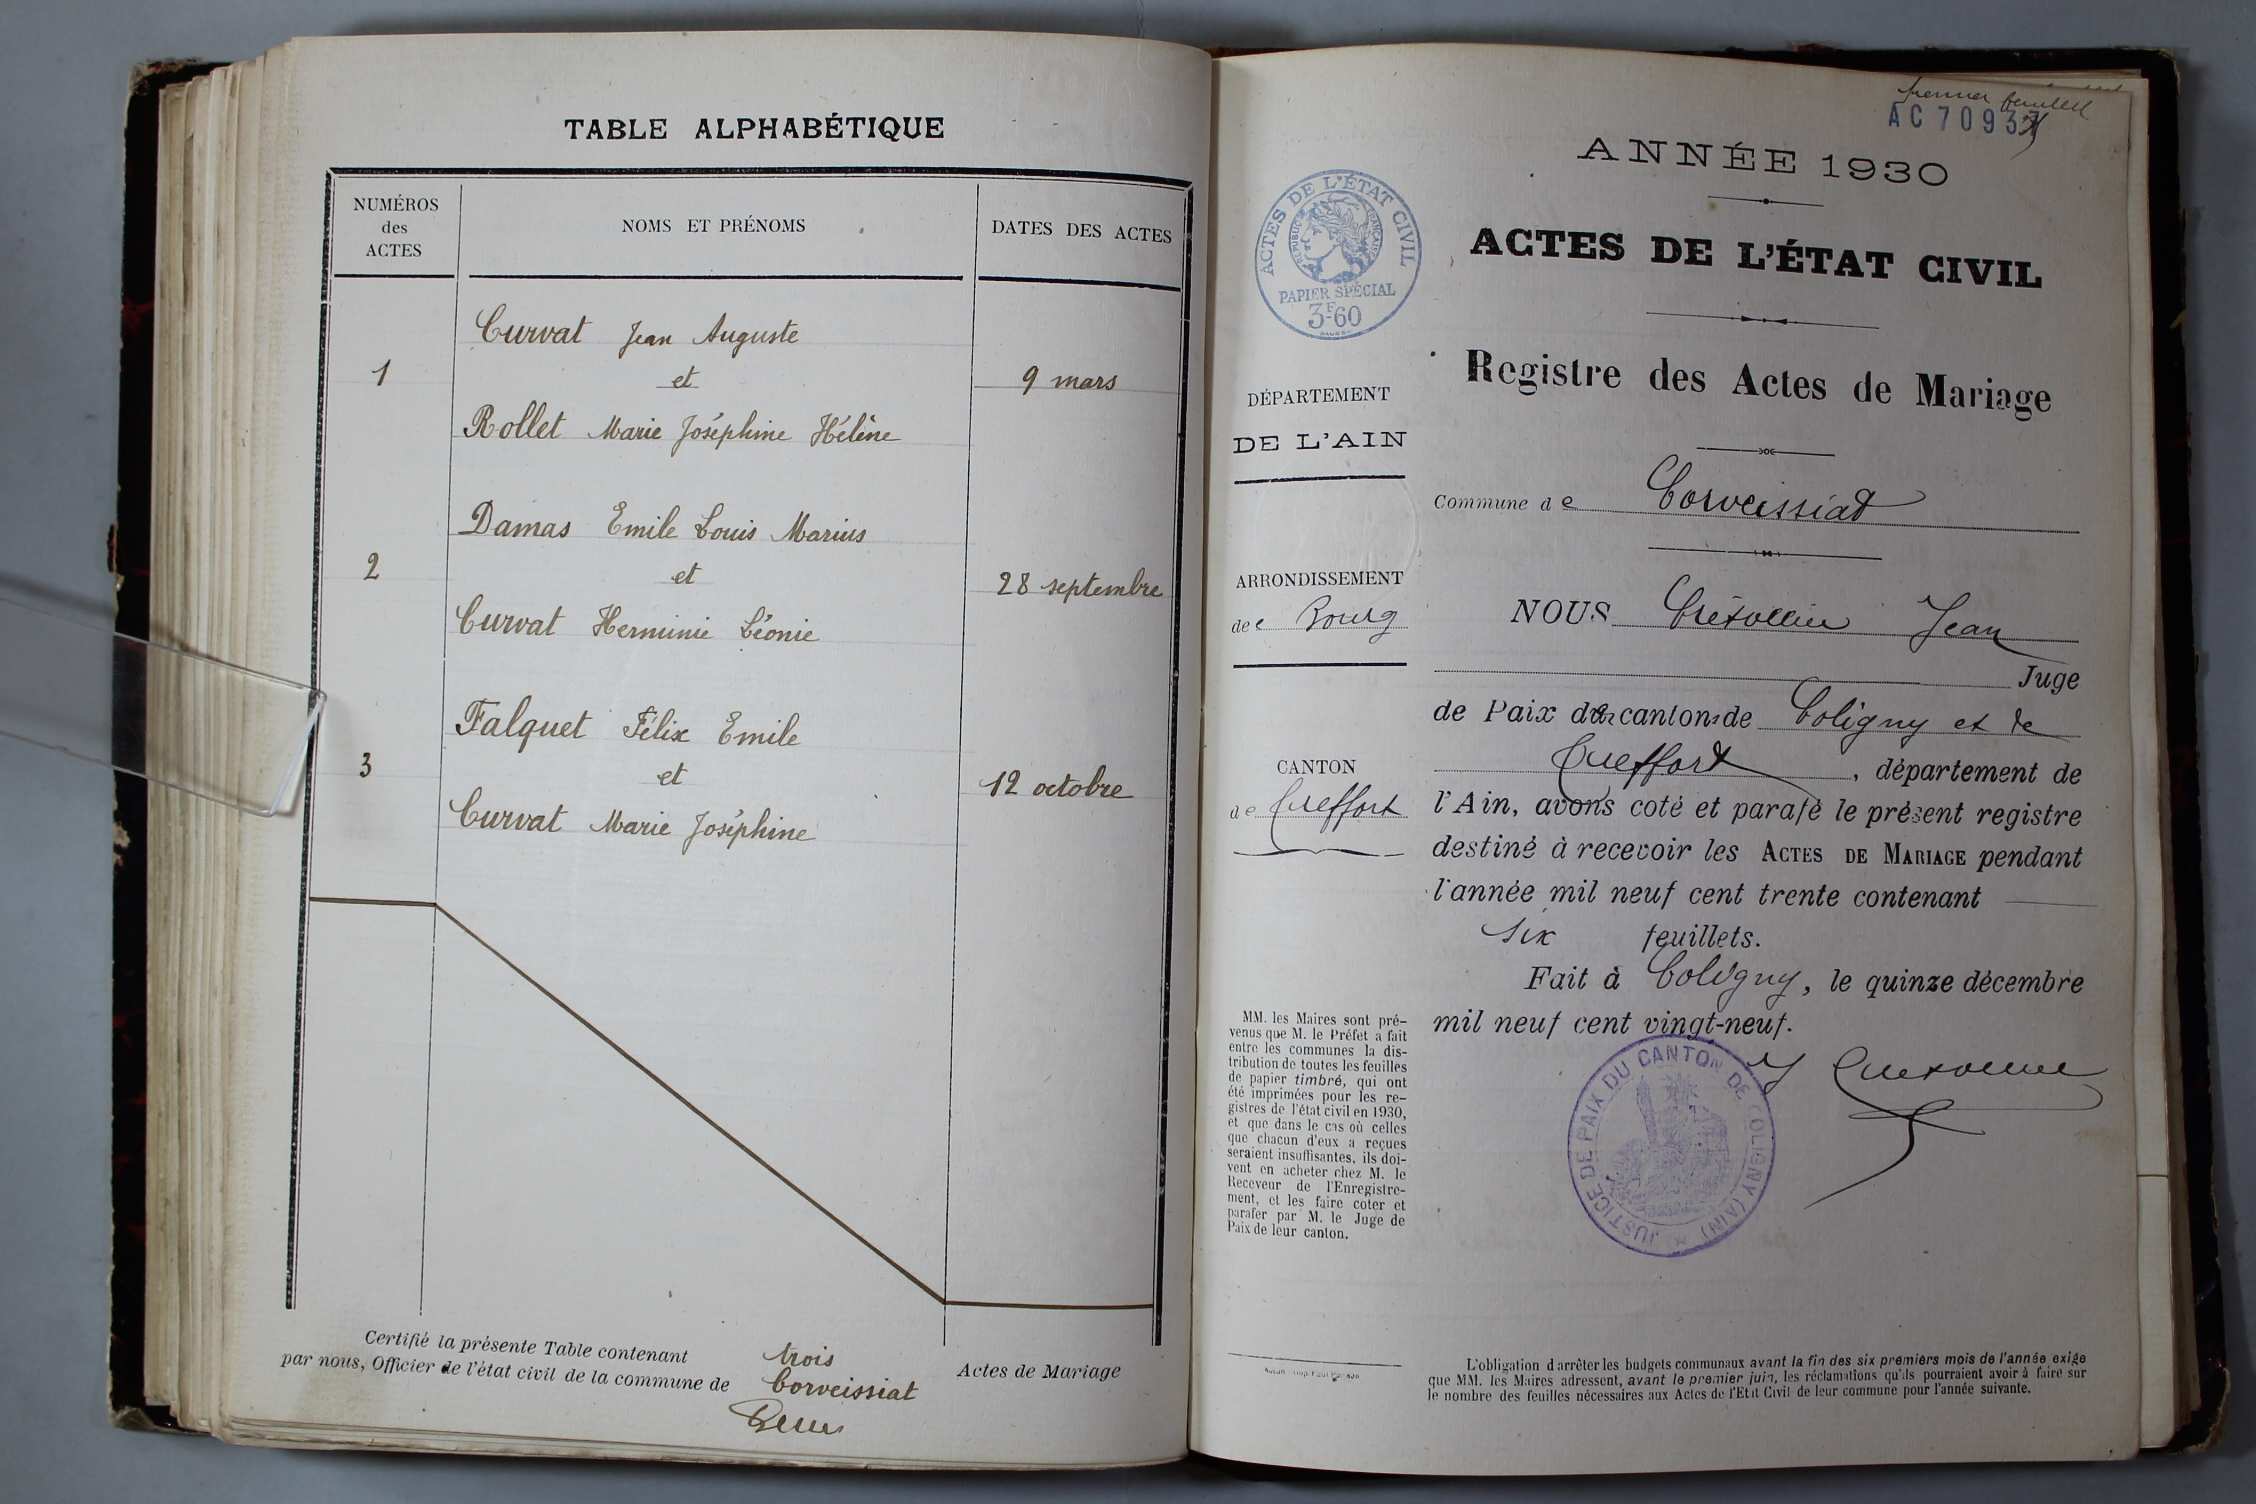 TABLE ALPHABÉTIQUE
NUMÉROS
des
ACTES
NOMS ET PRÉNOMS
DATES DES ACTES
Curvat Jean Auguste
1 et 9 mars
Rollet Marie Joséphine Hélène
Damas Emile Louis Marius
2 et 28 septembre
Curvat Herminie Léonie
Falquet Félix Emile
3 et 12 octobre
Curvat Marie Joséphine
Certifié la présente Table contenant trois Actes de Mariage
par nous, Officier de l'état civil de la commune de Corveissiat
premier feuillet
AC 70937
ANNÉE 1930
ACTES DE L'ÉTAT CIVIL
RÉPUBLIQUE FRANÇAISE
PAPIER SPÉCIAL
3F60
ACTES DE L'ÉTAT CIVIL
Registre des Actes de Mariage
DÉPARTEMENT
DE L'AIN
Commune de Corveissiat
ARRONDISSEMENT
de Bourg
CANTON
de Treffort
NOUS Jean
Juge
de Paix des cantons de Coligny et de
Treffort, département de
l'Ain, avons coté et parafé le présent registre
destiné à recevoir les ACTES DE MARIAGE pendant
l'année mil neuf cent trente contenant
six feuillets.
Fait à Coligny, le quinze décembre
mil neuf cent vingt-neuf.
JUSTICE DE PAIX DU CANTON DE COLIGNY (AIN)
MM. les Maires sont pré-
venus que M. le Préfet a fait
entre les communes la dis-
tribution de toutes les feuilles
de papier timbré, qui ont
été imprimées pour les re-
gistres de l'état civil en 1930,
et que dans le cas où celles
que chacun d'eux a reçues
seraient insuffisantes, ils doi-
vent en acheter chez M. le
Receveur de l'Enregistre-
ment, et les faire coter et
parafer par M. le Juge de
Paix de leur canton.
L'obligation d'arrêter les budgets communaux avant la fin des six premiers mois de l'année exige
que MM. les Maires adressent, avant le premier juin, les réclamations qu'ils pourraient avoir à faire sur
le nombre des feuilles nécessaires aux Actes de l'Etat Civil de leur commune pour l'année suivante.